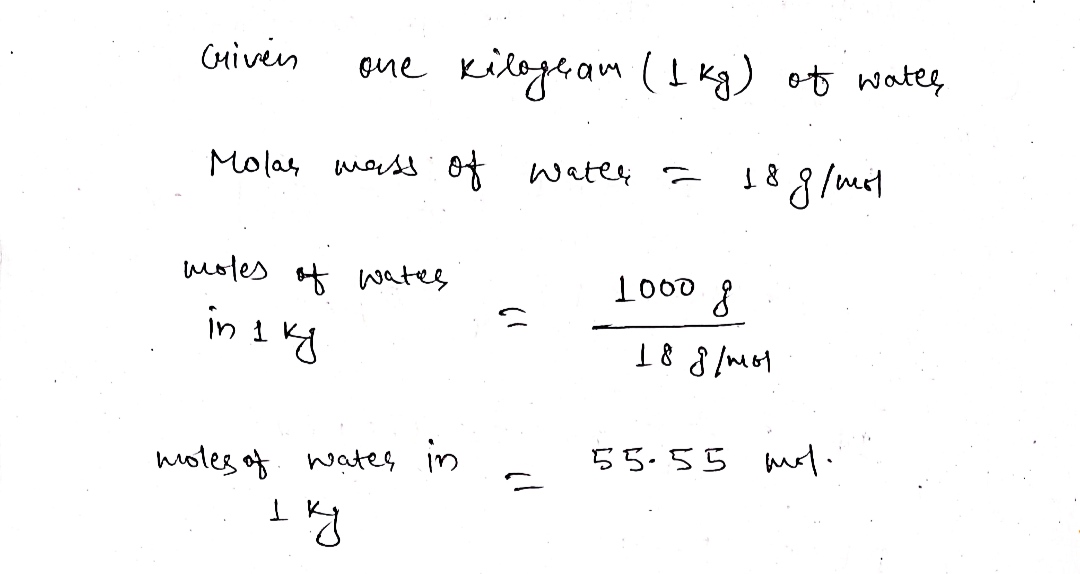 Given one kilogram (1 kg) of water
Molar mass of water = 18 g/mol
moles of water
in 1 kg = 1000 g
18 g/mol
moles of water in = 55.55 mol.
1 kg